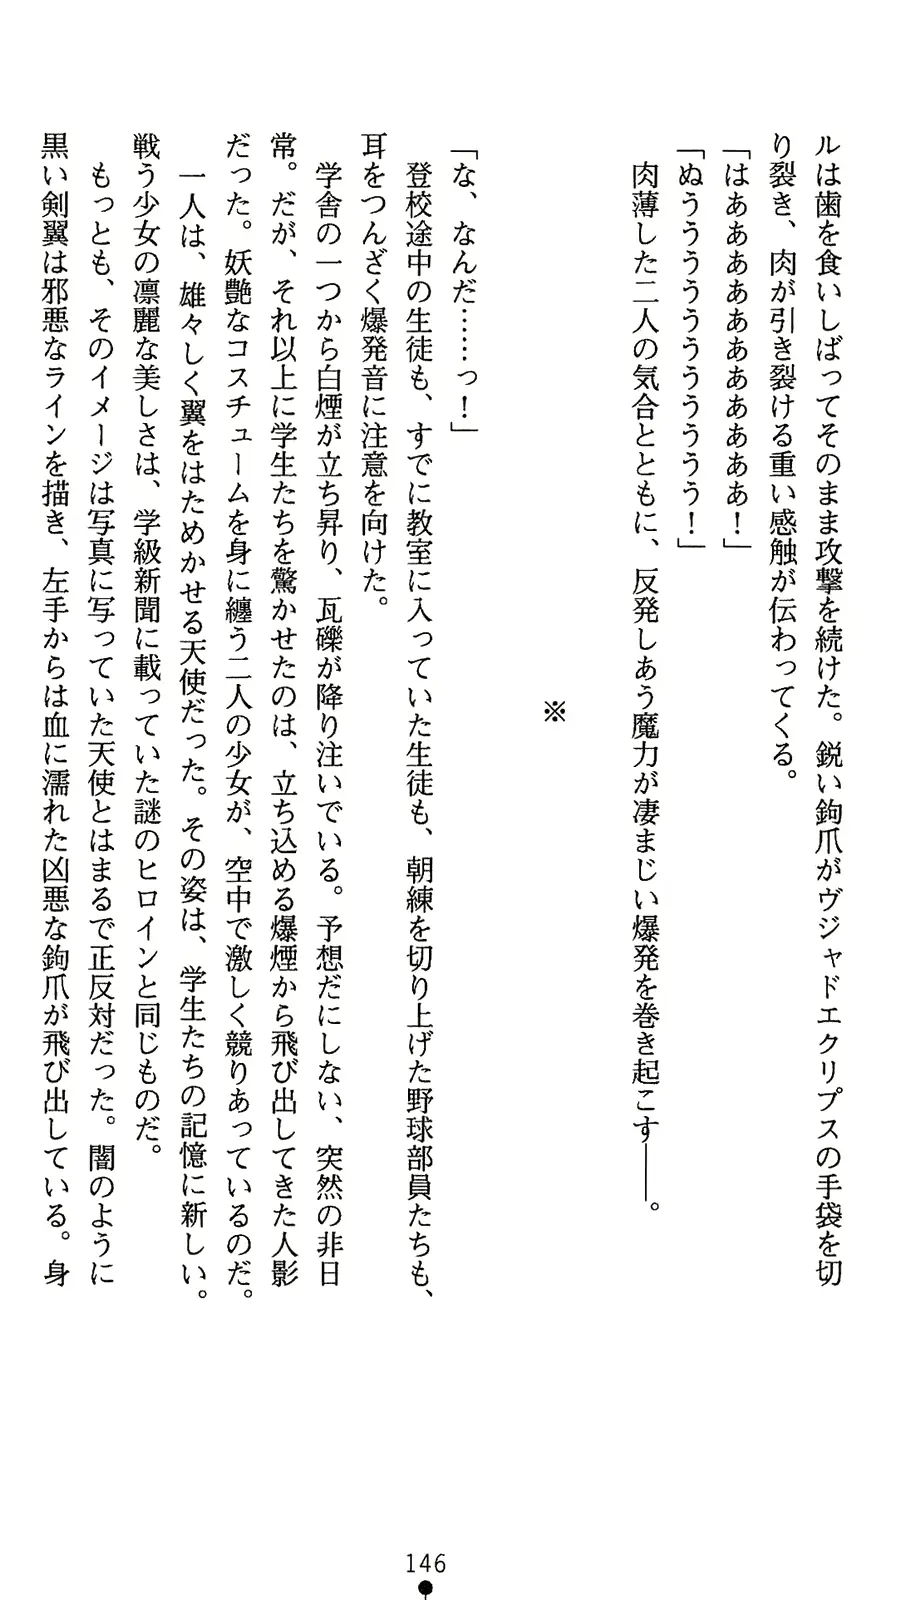 ルは歯を食いしばってそのまま攻撃を続けた。鋭い鉤爪がヴジャドエクリプスの手袋を切
り裂き、肉が引き裂ける重い感触が伝わってくる。
「はああああああああああ！」
「ぬうううううううううう！」
肉薄した二人の気合とともに、反発しあう魔力が凄まじい爆発を巻き起こす――。
※
「な、なんだ……っ！」
登校途中の生徒も、すでに教室に入っていた生徒も、朝練を切り上げた野球部員たちも、
耳をつんざく爆発音に注意を向けた。
学舎の一つから白煙が立ち昇り、瓦礫が降り注いでいる。予想だにしない、突然の非日
常。だが、それ以上に学生たちを驚かせたのは、立ち込める爆煙から飛び出してきた人影
だった。妖艶なコスチュームを身に纏う二人の少女が、空中で激しく競りあっているのだ。
一人は、雄々しく翼をはためかせる天使だった。その姿は、学生たちの記憶に新しい。
戦う少女の凛麗な美しさは、学級新聞に載っていた謎のヒロインと同じものだ。
もっとも、そのイメージは写真に写っていた天使とはまるで正反対だった。闇のように
黒い剣翼は邪悪なラインを描き、左手からは血に濡れた凶悪な鉤爪が飛び出している。身
146